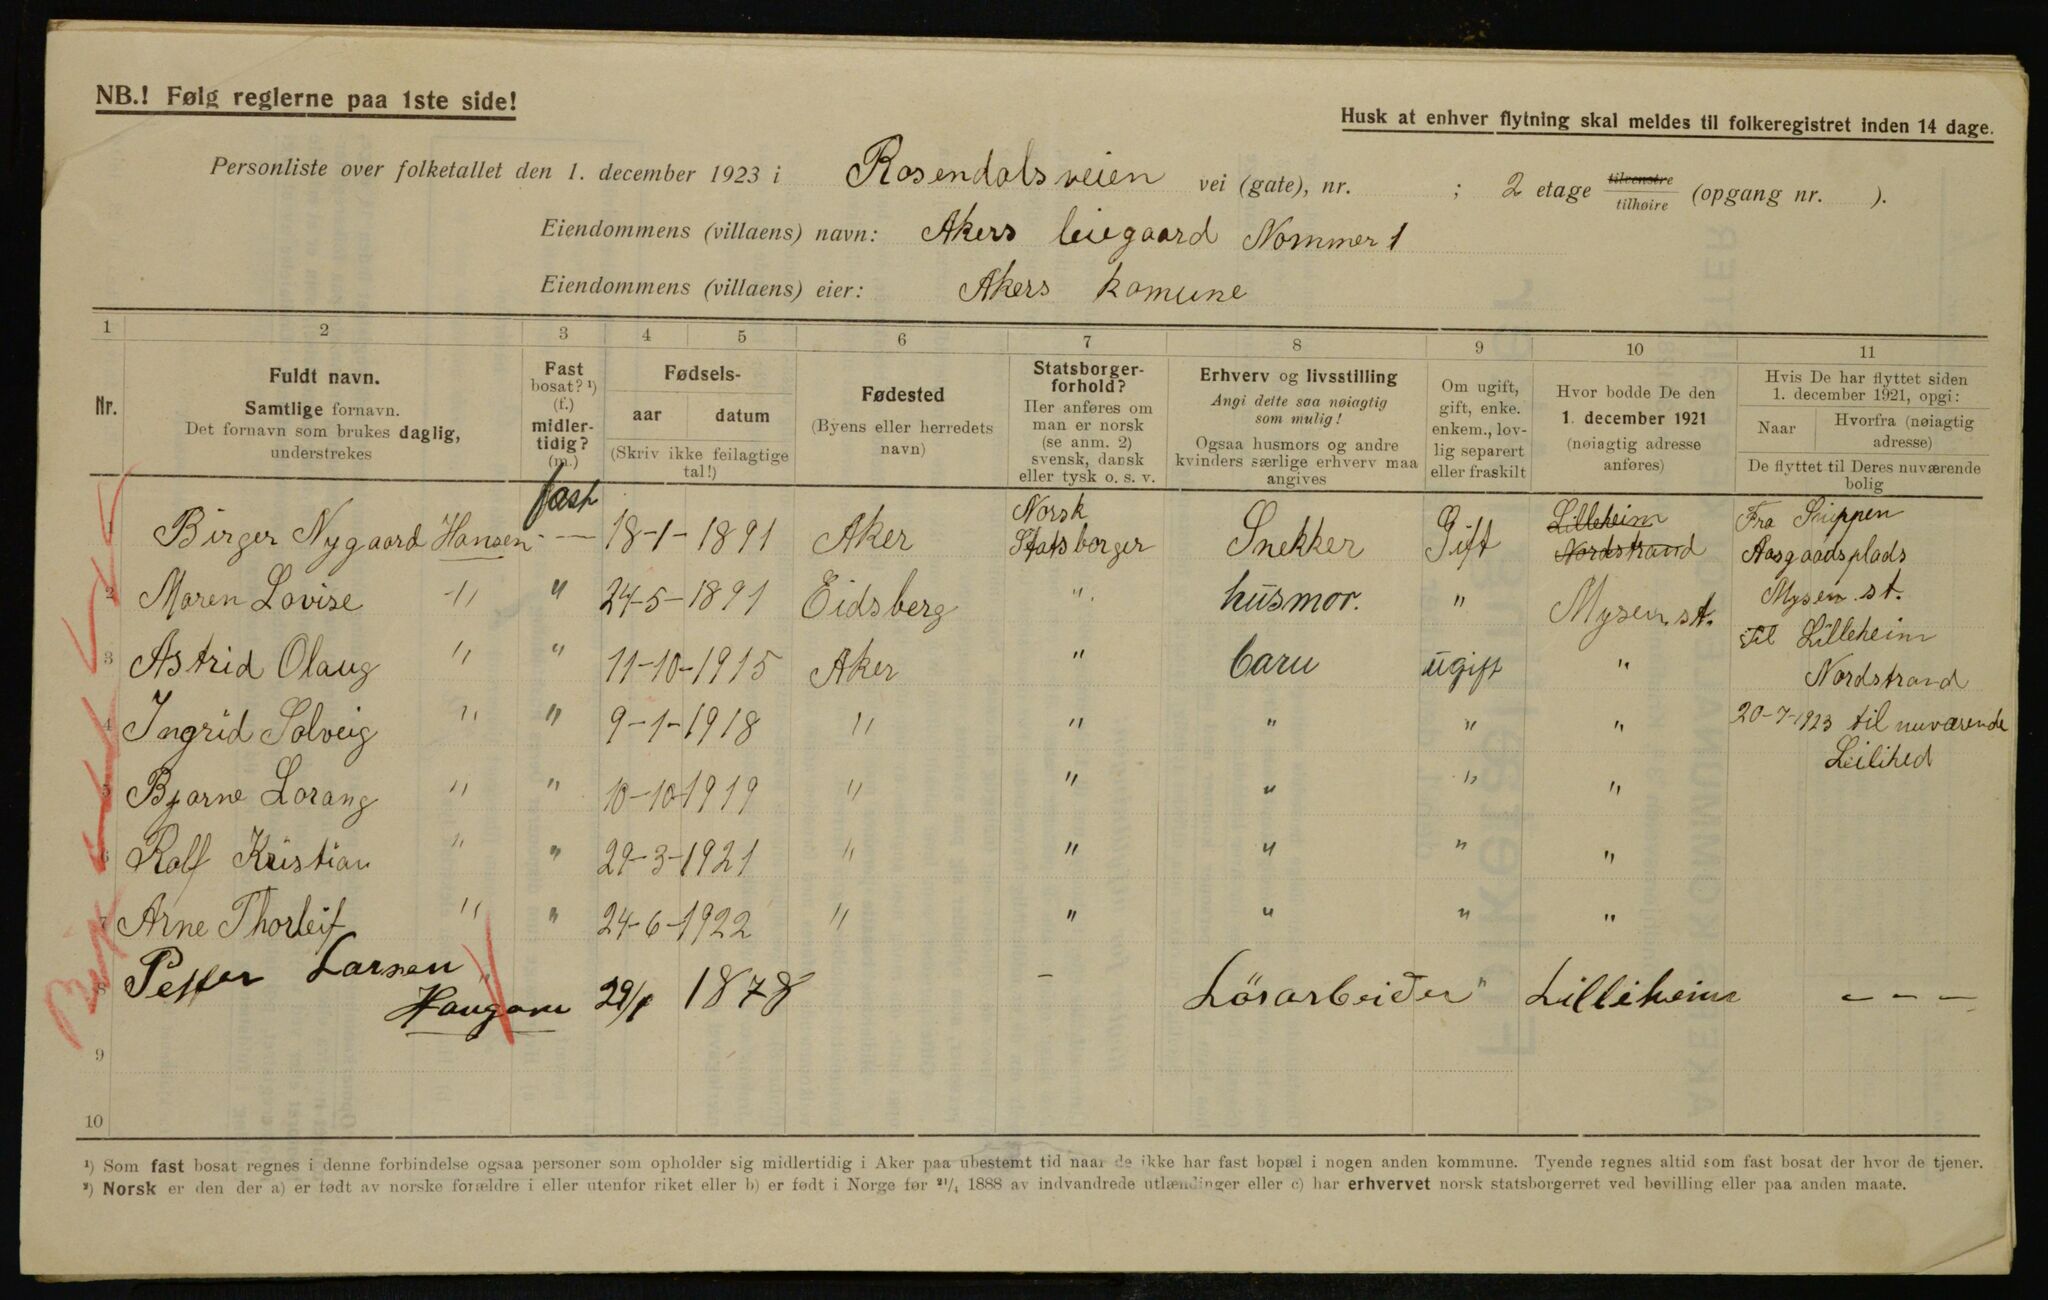 NB.! Følg reglerne paa 1ste side!
Husk at enhver flytning skal meldes til folkeregistret inden 14 dage.
Personliste over folketallet den 1. december 1923 i Rosendalsveien vei (gate), nr. ; 2 etage tilvenstre tilhøire (opgang nr. ).
Eiendommens (villaens) navn: Akers leiegaard Nommer 1
Eiendommens (villaens) eier: Akers komune
1 2 3 4 5 6 7 8 9 10 11
Nr.
Fuldt navn.
Samtlige fornavn.
Det fornavn som brukes daglig,
understrekes
Fast
bosat? ¹)
(f.)
midler-
tidig?
(m.)
Fødsels-
aar datum
(Skriv ikke feilagtige
tal!)
Fødested
(Byens eller herredets
navn)
Statsborger-
forhold?
Her anføres om
man er norsk
(se anm. 2)
svensk, dansk
eller tysk o. s. v.
Erhverv og livsstilling
Angi dette saa nøiagtig
som mulig!
Ogsaa husmors og andre
kvinders særlige erhverv maa
angives
Om ugift,
gift, enke.
enkem., lov-
lig separert
eller fraskilt
Hvor bodde De den
1. december 1921
(nøiagtig adresse
anføres)
Hvis De har flyttet siden
1. december 1921, opgi:
Naar Hvorfra (nøiagtig
adresse)
De flyttet til Deres nuværende
bolig
1 Birger Nygaard Hansen fast 18-1- 1891 Aker Norsk Statsborger Snekker Gift Lilleheim Nordstrand Fra
Aasgaadsplads
2 Maren Lovise " " 24-5- 1891 Eidsberg " husmor. " Mysen st. Mysen st.
til Lilleheim
3 Astrid Olaug " " 11-10-1915 Aker " barn ugift "
Nordstrand
4 Ingrid Solveig " " 9-1-1918 " " " " " 20-7-1923 til nuværende
Leilihed
5 Bjarne Lorang " " 10-10-1919 " " " " "
6 Rolf Kristian " " 29-3-1921 " " " " "
7 Arne Thorleif " " 24-6-1922 " " " " "
8 Petter Larsen " 29/1 1878 - Lösarbeider " Lilleheim - - -
9
10
¹) Som fast bosat regnes i denne forbindelse ogsaa personer som opholder sig midlertidig i Aker paa ubestemt tid naar de ikke har fast bopæl i nogen anden kommune. Tyende regnes altid som fast bosat der hvor de tjener.
²) Norsk er den der a) er født av norske forældre i eller utenfor riket eller b) er født i Norge før ²¹/₄ 1888 av indvandrede utlændinger eller c) har erhvervet norsk statsborgerret ved bevilling eller paa anden maate.